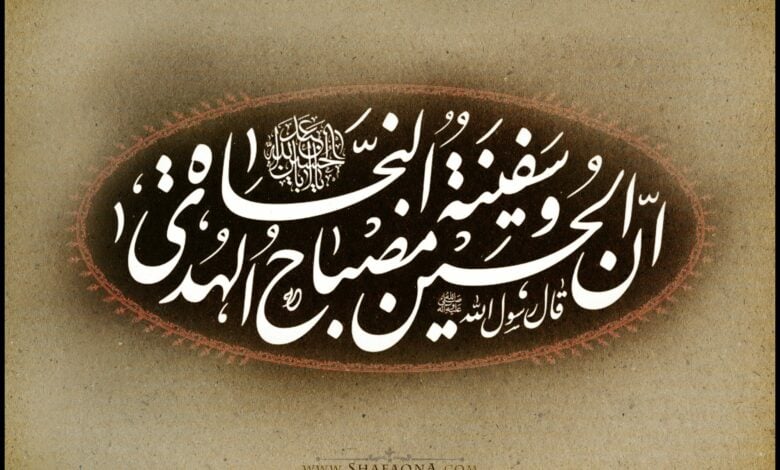 قال رسول الله ﷺ
انّ الحسين مصباح الهُدىٰ
وسفينة النجاه
www.ShafaqnA.com